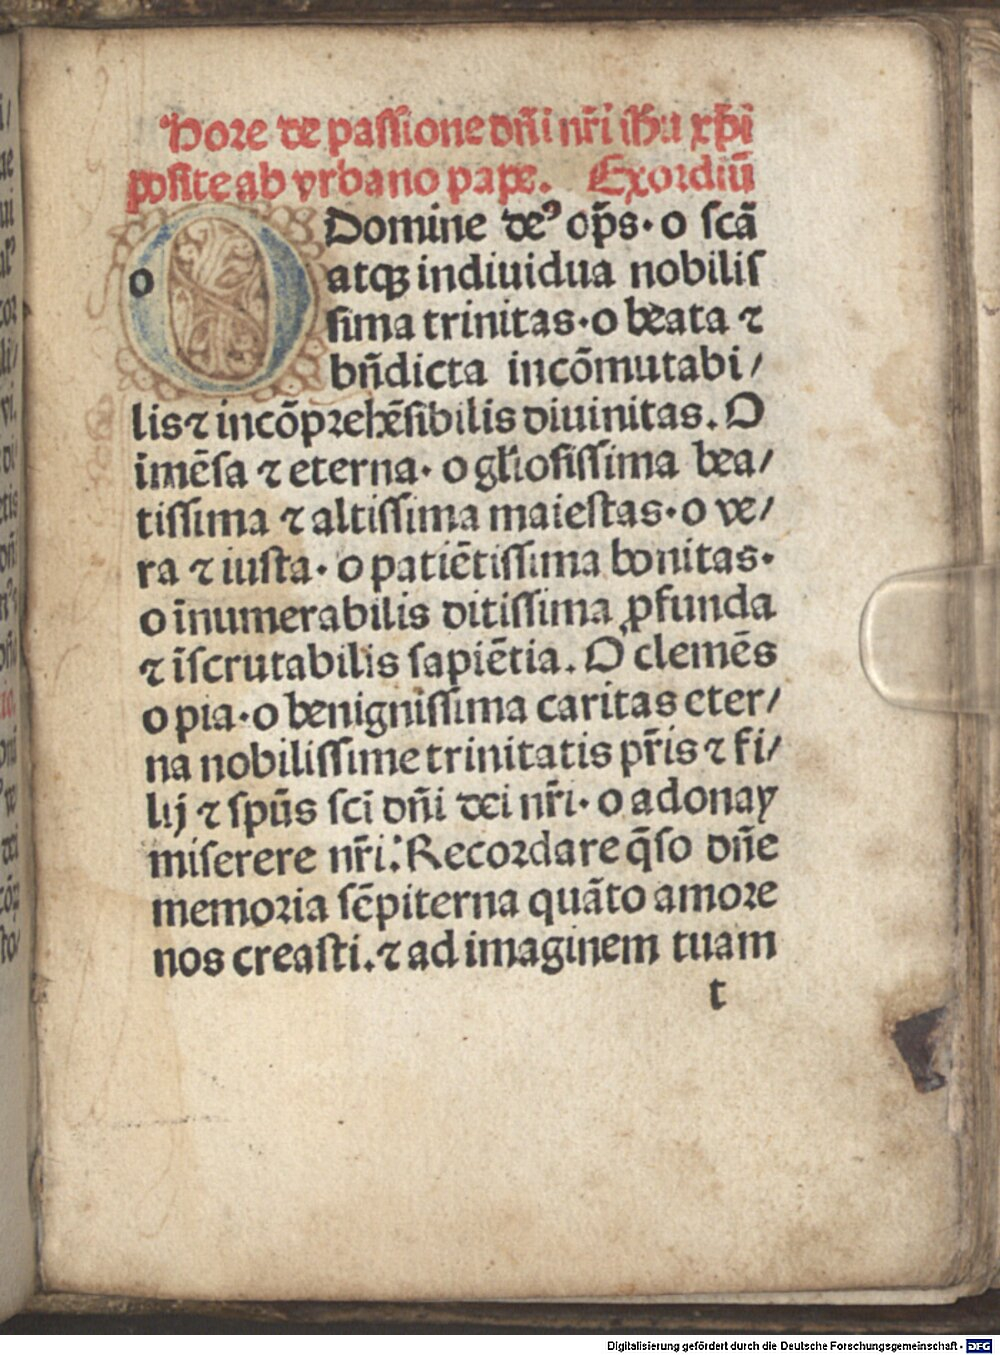 Hore de passione dn̄i nr̄i ih̄u xp̄i
posite ab vrbano pape. Exordiū
O Domine deꝰ op̄s· o scā
atqꝫ indiuidua nobilis
sima trinitas· o beata ⁊
bn̄dicta incōmutabi/
lis ⁊ incōprehēsibilis diuinitas. O
īmēsa ⁊ eterna· o gl̄iosissima bea/
tissima ⁊ altissima maiestas· o ve/
ra ⁊ iusta· o patiētissima bonitas·
o īnumerabilis ditissima ꝓfunda
⁊ īscrutabilis sapiētia. O clemēs
o pia· o benignissima caritas eter/
na nobilissime trinitatis pr̄is ⁊ fi/
lij ⁊ spūs scī dn̄i dei nr̄i· o adonay
miserere nr̄i: Recordare q̄so dn̄e
memoria sēpiterna quāto amore
nos creasti. ⁊ ad imaginem tuam
t
Digitalisierung gefördert durch die Deutsche Forschungsgemeinschaft - DFG